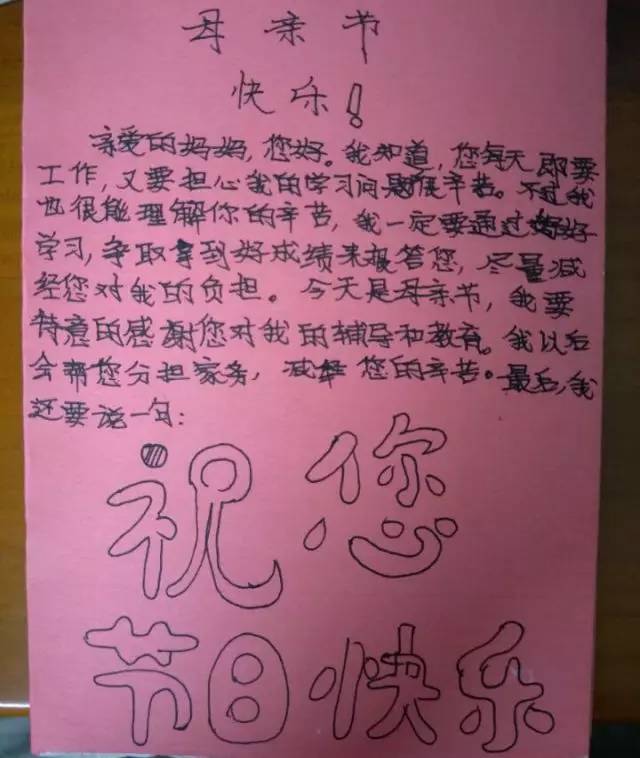 母亲节
快乐!
亲爱的妈妈,您好。我知道,您每天即要
工作,又要担心我的学习问题很辛苦。不过我
也很能理解你的辛苦,我一定要通过好好
学习,争取拿到好成绩来报答您,尽量减
轻您对我的负担。今天是母亲节,我要
特意的感谢您对我的辅导和教育。我以后
会帮您分担家务,减轻您的辛苦。最后,我
还要说一句:
祝您
节日快乐